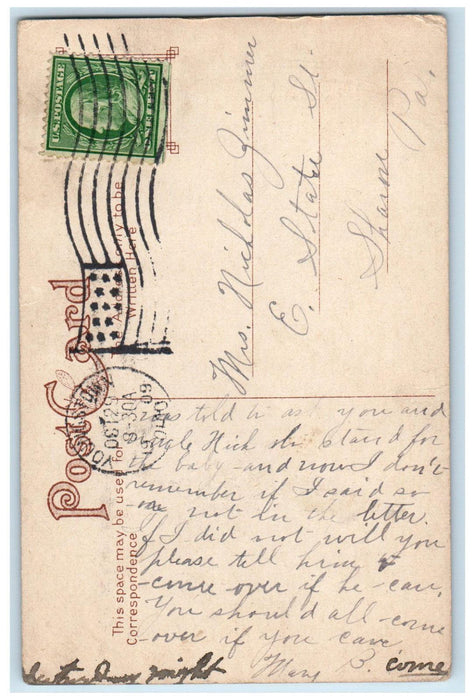 U.S. POSTAGE
ONE CENT
Post Card
This space may be used for
Correspondence
Address only to be
Written Here
OCT 25
8-30 A
09
OHIO
Mrs. Nicholas Zimmer
E. State St.
Sharon Pa.
was told to ask you and
Uncle Nick to stand for
the baby - and now I don't
remember if I said so
or not in the letter.
If I did not will you
please tell him to
come over if he can.
You should all come
over if you can
Mary B. come
night